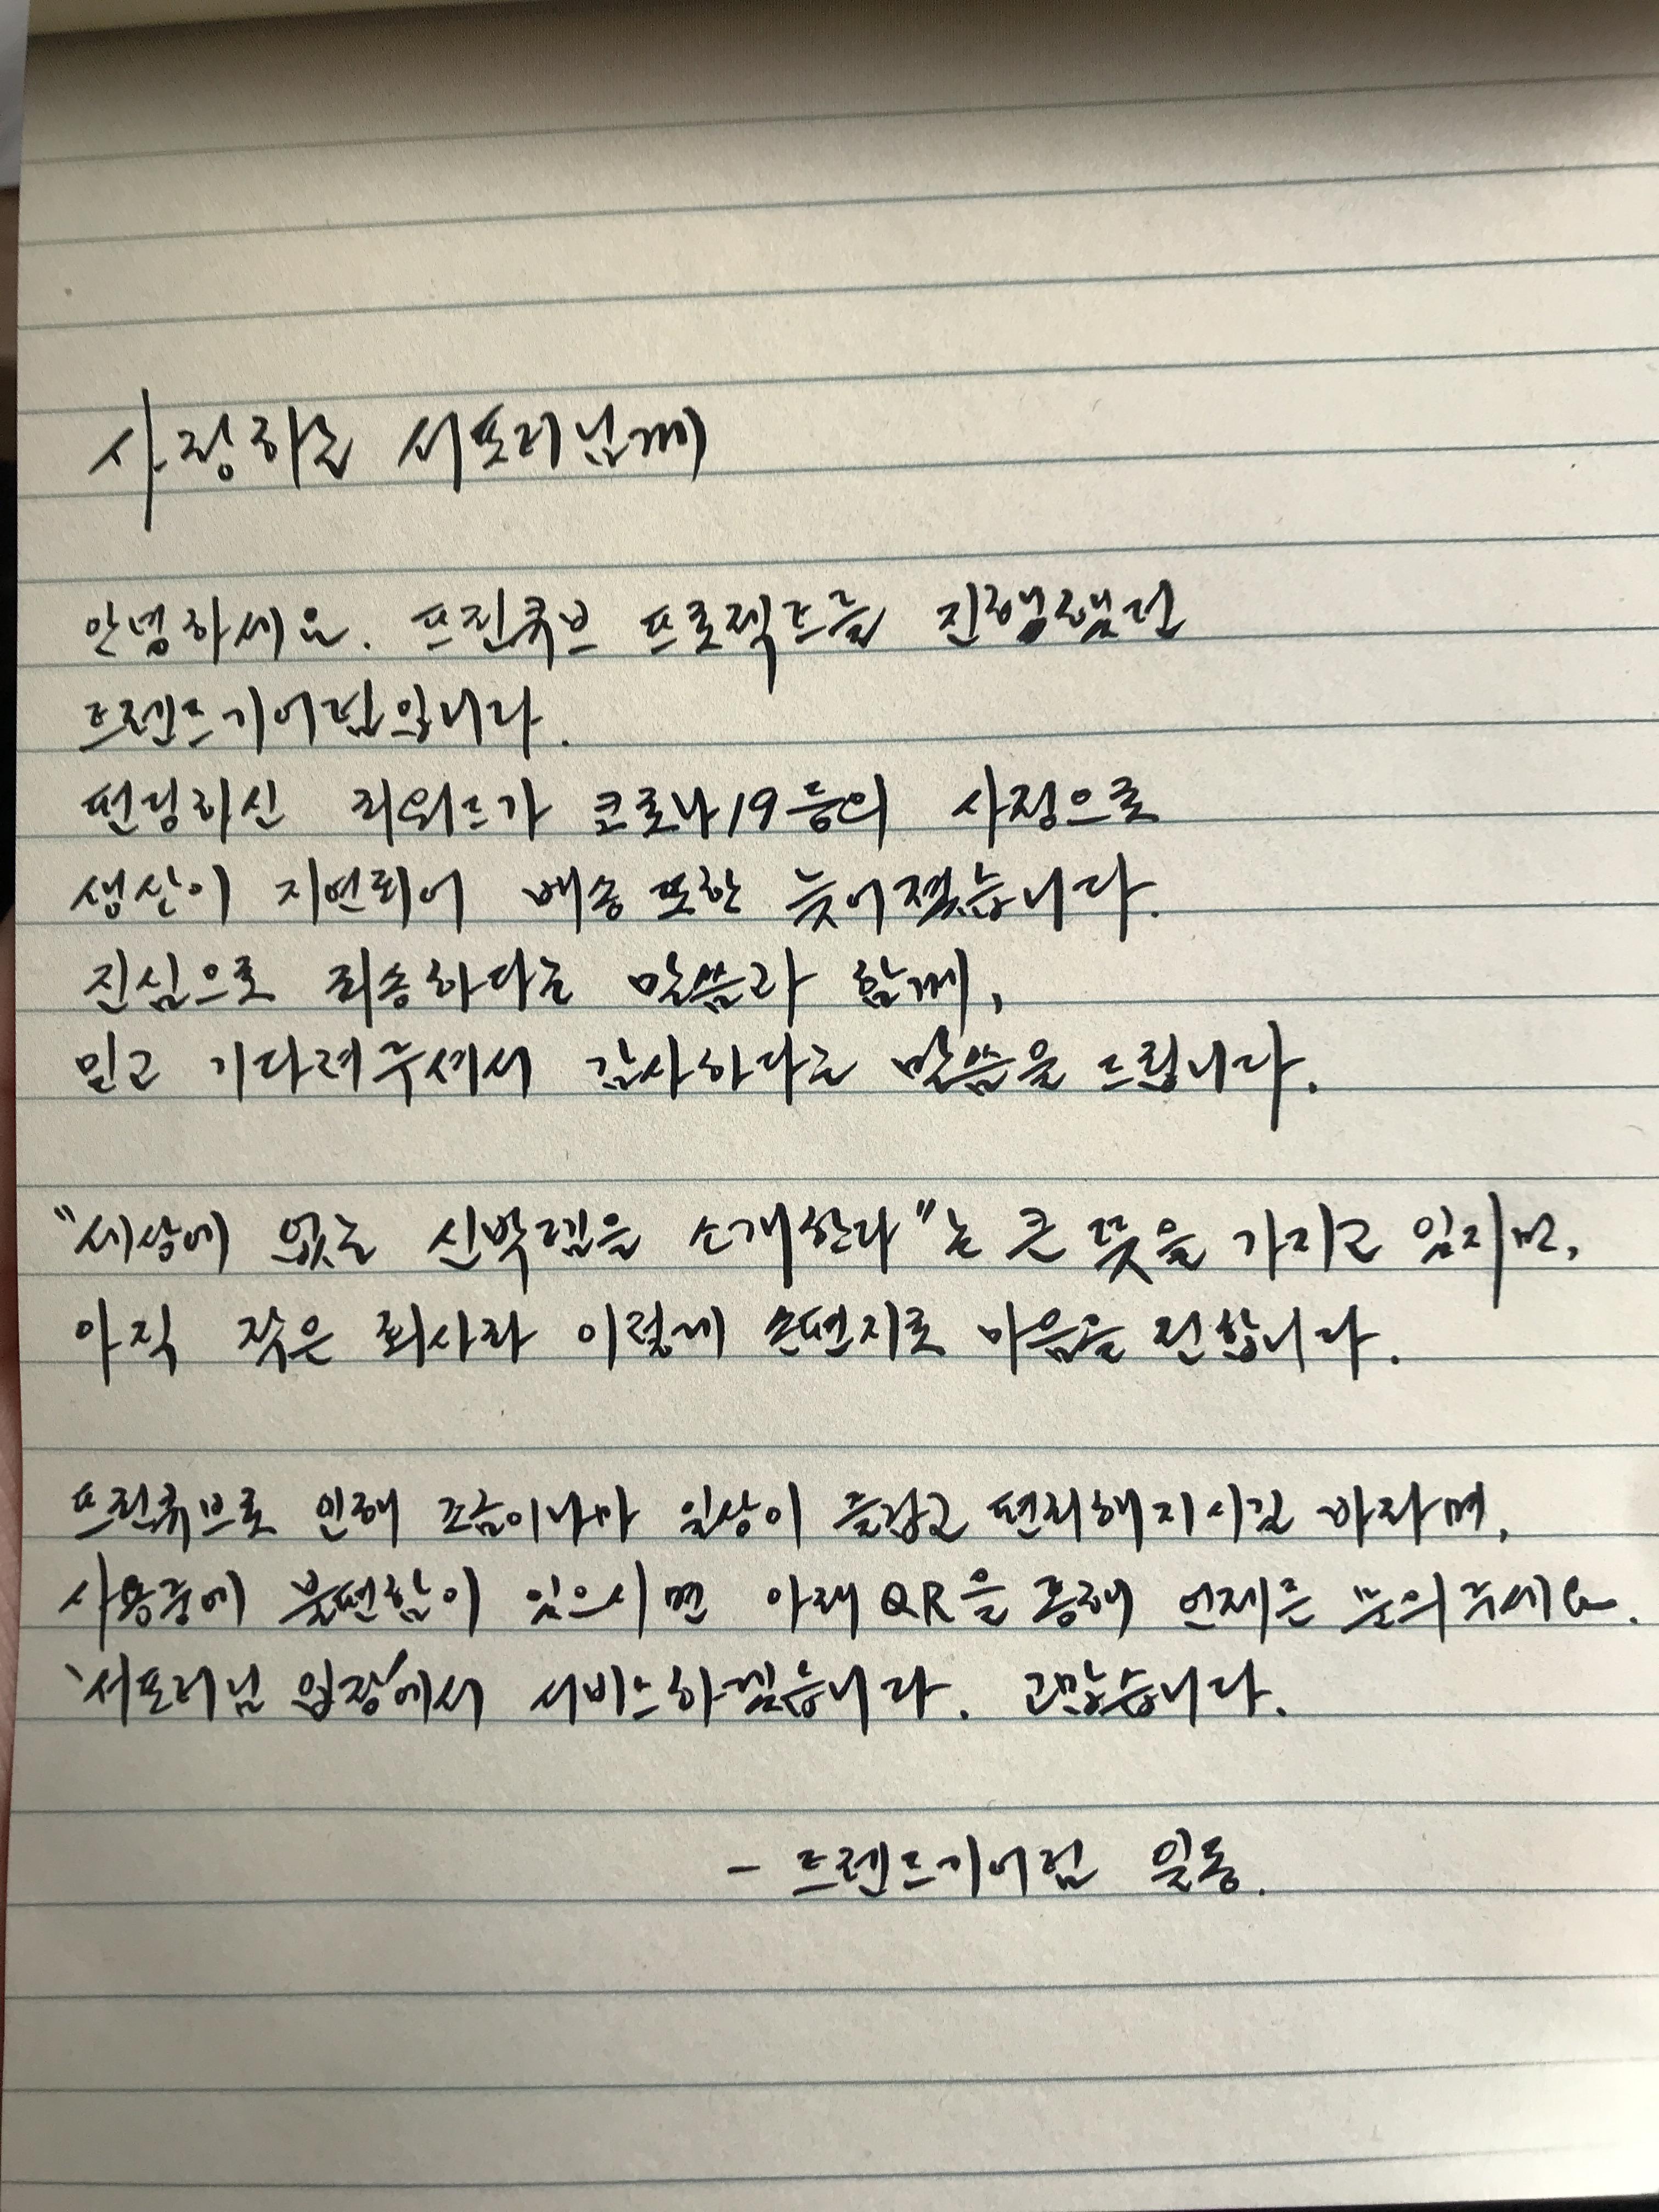 사랑하는 서포터님께
안녕하세요. 프린큐브 프로젝트를 진행했던
트렌드기어랩입니다.
펀딩하신 리워드가 코로나19 등의 사정으로
생산이 지연되어 배송 또한 늦어졌습니다.
진심으로 죄송하다는 말씀과 함께,
믿고 기다려주셔서 감사하다는 말씀을 드립니다.
"세상에 없는 신박템을 소개한다"는 큰 뜻을 가지고 있지만,
아직 작은 회사라 이렇게 손편지로 마음을 전합니다.
프린큐브로 인해 조금이나마 일상이 즐겁고 편리해지시길 바라며,
사용중에 불편함이 있으시면 아래 QR을 통해 언제든 문의주세요.
'서포터님 입장'에서 서비스하겠습니다. 고맙습니다.
- 트렌드기어랩 일동.